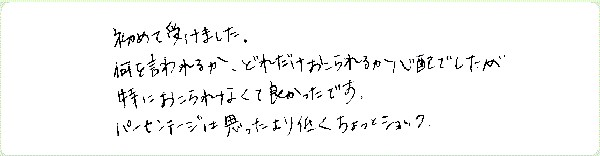 初めて受けました。
何を言われるか、どれだけおこられるか心配でしたが
特におこられなくて良かったです。
パーセンテージは思ったより低くちょっとショック.